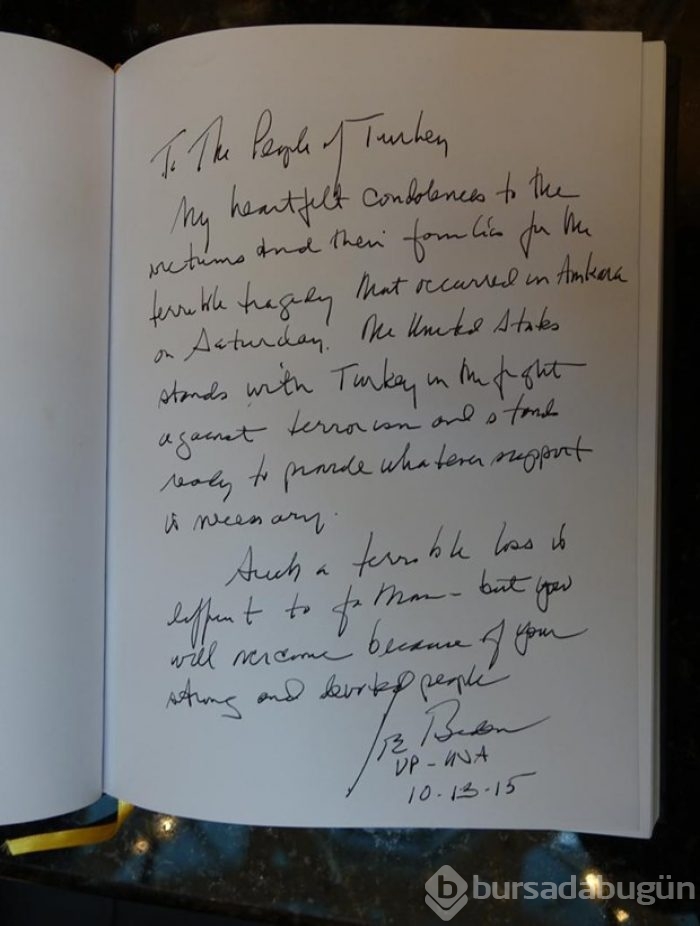 To The People of Turkey
My heartfelt condolences to the
victims and their families for the
terrible tragedy that occurred in Ankara
on Saturday. The United States
stands with Turkey in the fight
against terrorism and stands
ready to provide whatever support
is necessary.
Such a terrible loss is
difficult to fathom - but you
will overcome because of your
strong and devoted people
Joe Biden
VP-USA
10-13-15
b bursadabugün